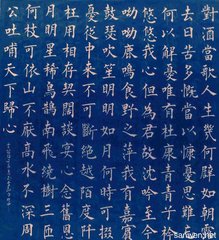 對酒當歌人生幾何譬如朝露
去日苦多慨當以慷憂思難忘
何以解憂唯有杜康青青子衿
悠悠我心但為君故沈吟至今
呦呦鹿鳴食野之苹我有嘉賓
鼓瑟吹笙明明如月何時可掇
憂從中來不可斷絕越陌度阡
枉用相存契闊談宴心念舊恩
月明星稀烏鵲南飛繞樹三匝
何枝可依山不厭高水不深周
公吐哺天下歸心
sanwen.net